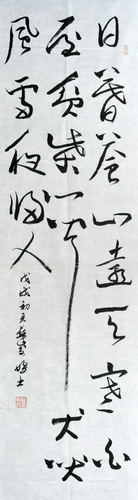 日暮蒼山遠天寒白
屋貧柴門聞犬吠
風雪夜歸人
戊戌初夏